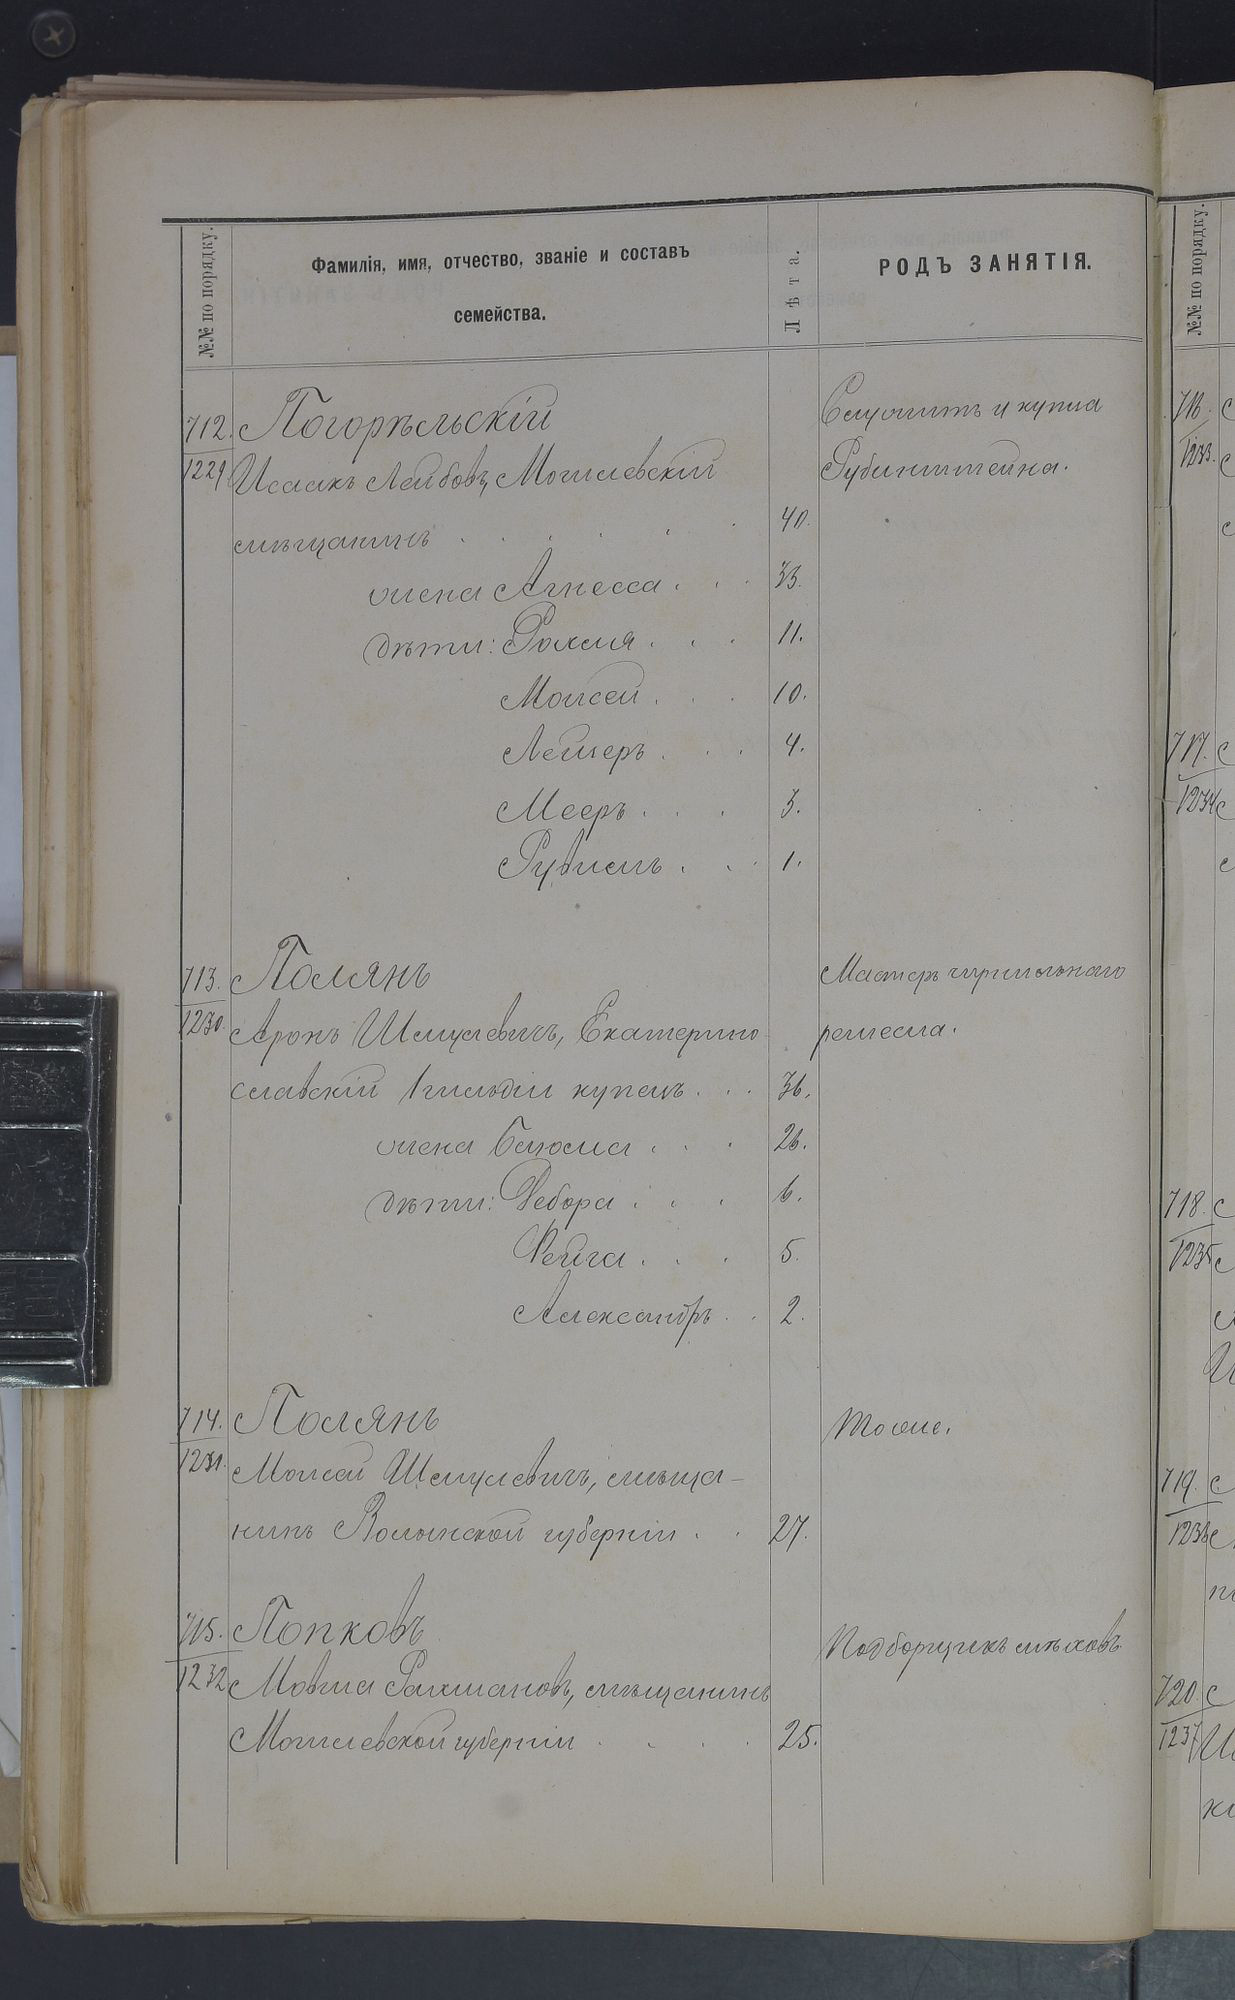 №№ по порядку.
Фамилія, имя, отчество, званіе и составъ
семейства.
Лѣта.
РОДЪ ЗАНЯТІЯ.
712. Погорѣльскій Служитъ у купца
1229 Исаакъ Лейбовъ, Могилевскій Рубинштейна.
мѣщанинъ 40.
жена Агнесса 33.
дѣти: Рахиля 11.
Моисей 10.
Лейзеръ 4.
Мееръ 3.
Рувимъ 1.
713. Полянъ Мастеръ чернильнаго
1230 Аронъ Шмулевичъ, Екатерино- ремесла.
славскій 1 гильдіи купецъ 36.
жена Блюма 26.
дѣти: Дебора 6.
Фейга 5.
Александръ 2.
714. Полянъ Тоже.
1231. Моисей Шмулевичъ, мѣща-
нинъ Волынской губерніи 27.
715. Попковъ Подборщикъ мѣховъ
1232 Мовша Рахмановъ, мѣщанинъ
Могилевской губерніи 25.
№№ по порядку.
716.
1233.
717.
1234
718.
1235
719.
1236
720.
1237